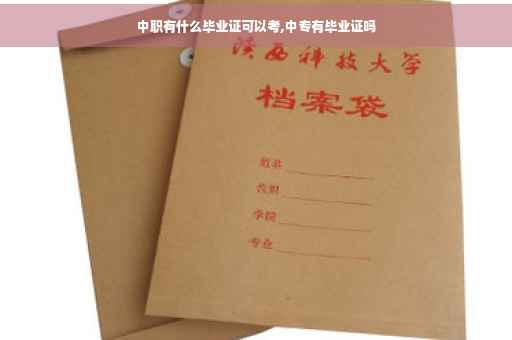 中职有什么毕业证可以考,中专有毕业证吗
陕西科技大学
档案袋
姓名
学院
专业